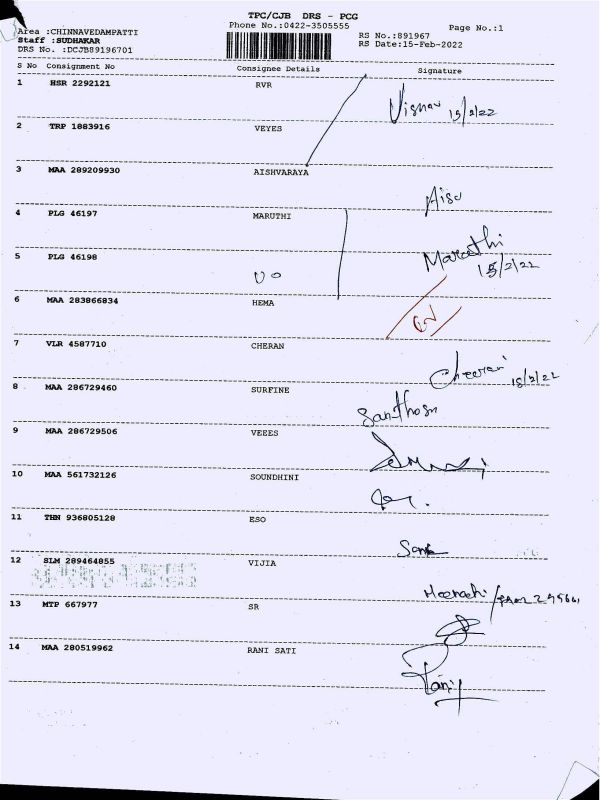 TPC/CJB DRS - PCG
Area :CHINNAVEDAMPATTI Phone No.:0422-3505555 Page No.:1
Staff :SUDHAKAR RS No.:891967
DRS No. :DCJB89196701 RS Date:15-Feb-2022
S No Consignment No Consignee Details Signature
1 HSR 2292121 RVR
15/2/22
2 TRP 1883916 VEYES
3 MAA 289209930 AISHVARAYA
Aisu
4 PLG 46197 MARUTHI
Maruthi
5 PLG 46198
15/2/22
6 MAA 283866834 HEMA
7 VLR 4587710 CHERAN
Cheran 15/2/22
8 MAA 286729460 SURFINE
Santhosh
9 MAA 286729506 VEEES
10 MAA 561732126 SOUNDHINI
11 THN 936805128 ESO
12 SLM 289464855 VIJIA
13 MTP 667977 SR
14 MAA 280519962 RANI SATI
Rani